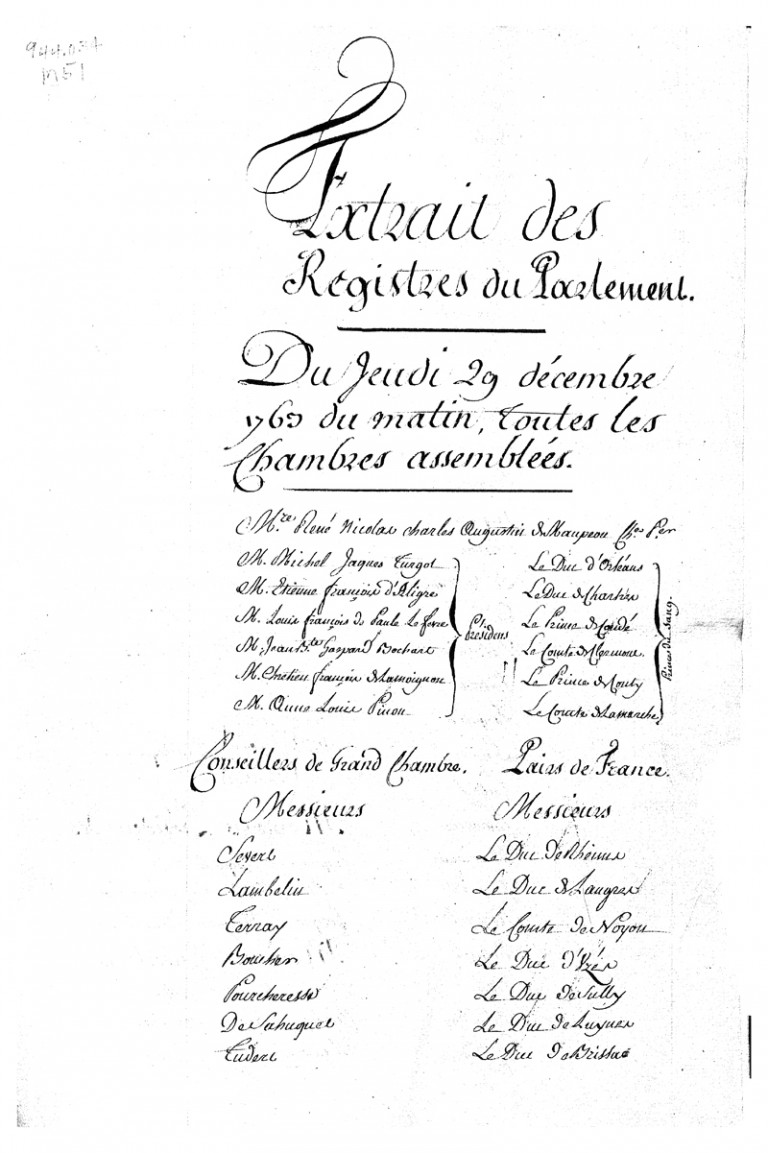 944.034
M51
Extrait des
Registres du Parlement.
Du Jeudi 29 décembre
1763 du matin, toutes les
Chambres assemblées.
M.re René Nicolas Charles Augustin de Maupeou Ch.er P.er
M. Michel Jaques Turgot
M. Etienne françois d'Aligre
M. Louis françois de Paule Le fevre
M. Jean B.te Gaspard Bochart
M. Chrétien françois de Lamoignon
M. Anne Louis Pinon
Presidens
Le Duc d'Orléans
Le Duc de Chartres
Le Prince de Condé
Le Comte de Clermont
Le Prince de Conty
Le Comte de Lamarche
Princes du Sang.
Conseillers de Grand Chambre.
Messieurs
Severt
Lambelin
Terray
Boucher
Pourcheresse
De Sahuguet
Tudert
Pairs de France.
Messieurs
Le Duc de Rheims
Le Duc de Langres
Le Comte de Noyon
Le Duc d'Uzés
Le Duc de Sully
Le Duc de Luynes
Le Duc de Brissac